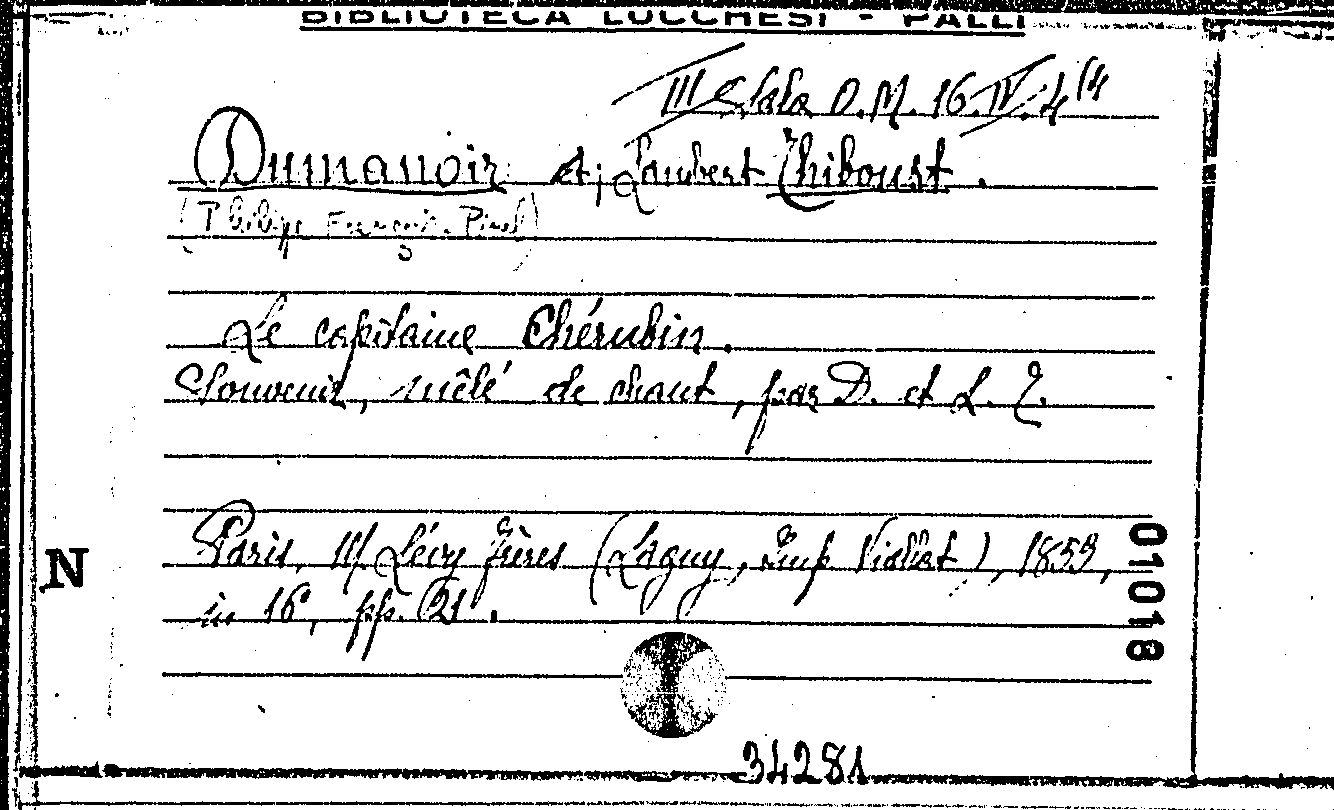 BIBLIOTECA LUCCHESI - PALLI
III Sala O.M. 16.IV.4
Dumanoir et; Lambert Thiboust.
(Philippe François Pinel)
Le capitaine Chérubin.
Souvenir, mêlé de chant, par D. et L. T.
Paris, M. Lévy frères (Lagny, Imp Viallat), 1853,
in 16, pp. 21.
N
01018
34281